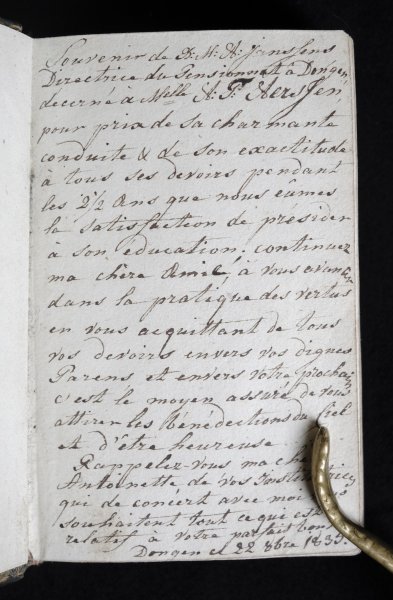 Souvenir de D: M: A: Janssens
Directrice du Pensionnat à Dongen,
decerné à Melle A: F: Aerssen,
pour prix de sa charmante
conduite & de son exactitude
à tous ses devoirs pendant
les 2 1/2 Ans que nous eûmes
la satisfaction de présider
à son éducation. continuez
ma chère Amie, à vous avancer
dans la pratique des vertus
en vous acquittant de tous
vos devoirs envers vos dignes
Parens et envers votre prochain
c'est le moyen assuré de vous
attirer les bénédictions du Ciel
et d'être heureuse
Rappelez-vous ma
Antoinette de vos
qui de concert avec
souhaitent tout ce qui est
relatif à votre parfait
Dongen ce 22 8bre 1835